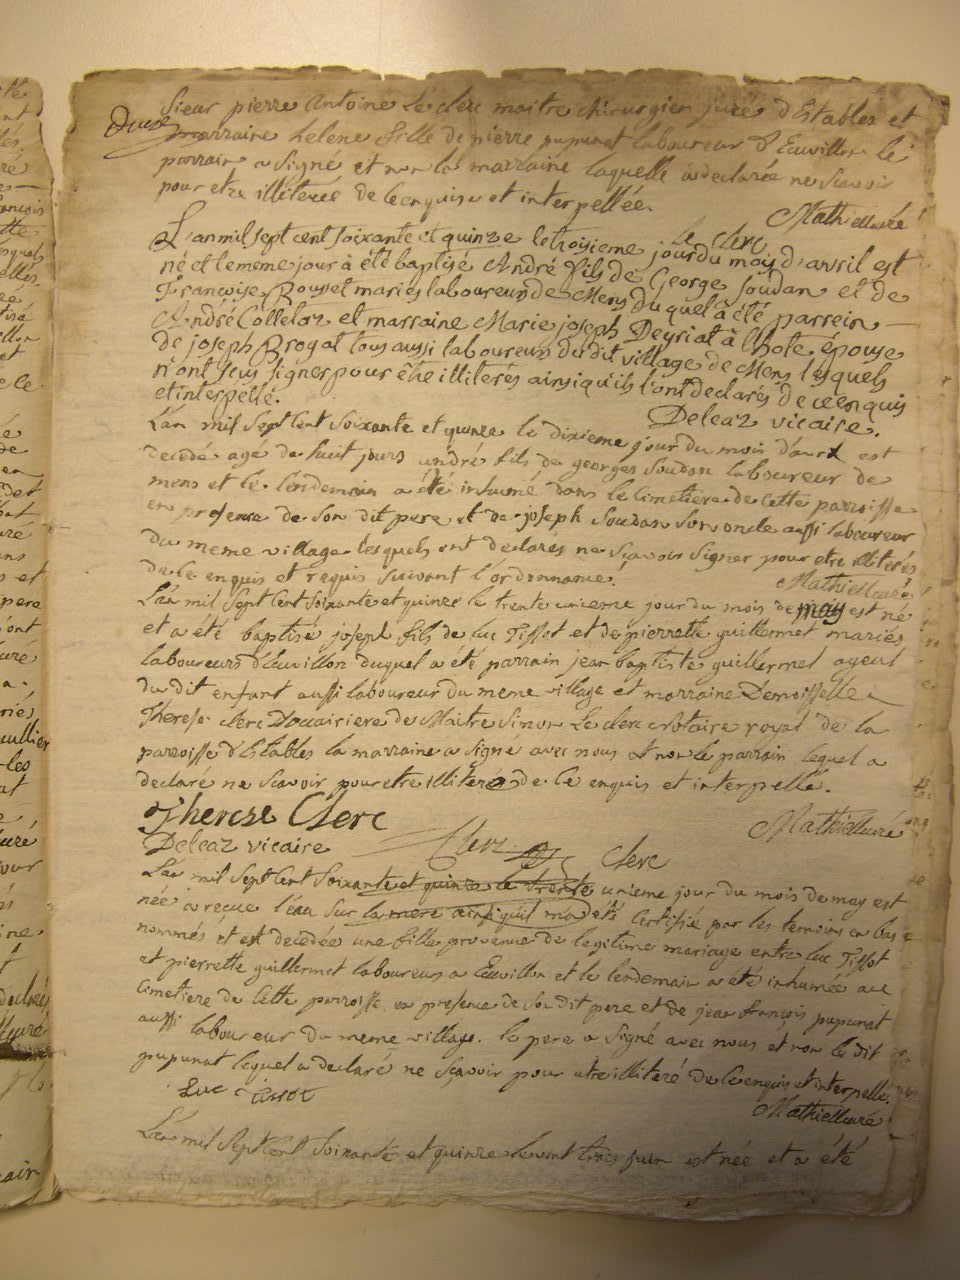 Sieur pierre Antoine Le clerc maitre chirurgien juré d'Estables et
marraine helene fille de pierre pupunat laboureur d'Euvillon le
parrain a signé et non la marraine laquelle a declarée ne scavoir
pour etre illiterée de ce enquise et interpellée.
Mathieu curé
Le clerc
L'an mil sept cent soixante et quinze le troisieme jour du mois d'avril est
né et le meme jour à été baptisé André fils de George Soudan et de
Françoise Rousset mariés laboureurs de Mens du quel à été parrein
André Colleloz et marraine Marie joseph Deyriat à l'hote épouse
de joseph Brogat tous aussi laboureurs du dit village de Mens lesquels
n'ont sçus signer pour être illiterés ainsi qu'ils l'ont declarés de ce enquis
et interpellé.
Deleaz vicaire.
L'an mil sept cent soixante et quinze le dixieme jour du mois d'avril est
decedé agé de huit jours andré fils de georges Soudan laboureur de
mens et le lendemain a été inhumé dans le cimetiere de cette parroisse
en presence de son dit pere et de joseph Soudan son oncle aussi laboureur
du meme village lesquels ont declarés ne scavoir signer pour etre illiterés
de ce enquis et requis suivant l'ordonnance.
Mathieu curé
L'an mil sept cent soixante et quinze le trente unieme jour du mois de may est né
et a été baptisé joseph fils de luc Tissot et de pierrette guillermet mariés
laboureurs d'Euvillon duquel a été parrain jean baptiste guillermet ayeul
du dit enfant aussi laboureur du meme village et marraine Demoiselle
Therese clerc Douairiere de Maitre Simon Le clerc Notaire royal de la
parroisse d'Estables la marraine a signé avec nous et non le parrain lequel a
declaré ne scavoir pour etre illiteré de ce enquis et interpellé.
Therese Clerc
Mathieu curé
Deleaz vicaire Clerc Clerc
L'an mil sept cent soixante et quinze le trente unieme jour du mois de may est
née a recue l'eau sur la mere ainsi qu'il m'a été certifié par les temoins en bas
nommés et est decedée une fille provenue de legitime mariage entre luc Tissot
et pierrette guillermet laboureurs a Euvillon et le lendemain a été inhumée au
cimetiere de cette parroisse en presence de son dit pere et de jean françois pupunat
aussi laboureur du meme village. le pere a signé avec nous et non le dit
pupunat lequel a declaré ne scavoir pour etre illiteré de ce enquis et interpellé.
Luc Tissot
Mathieu curé
L'an mil sept cent soixante et quinze le vint trois juin est née et a été